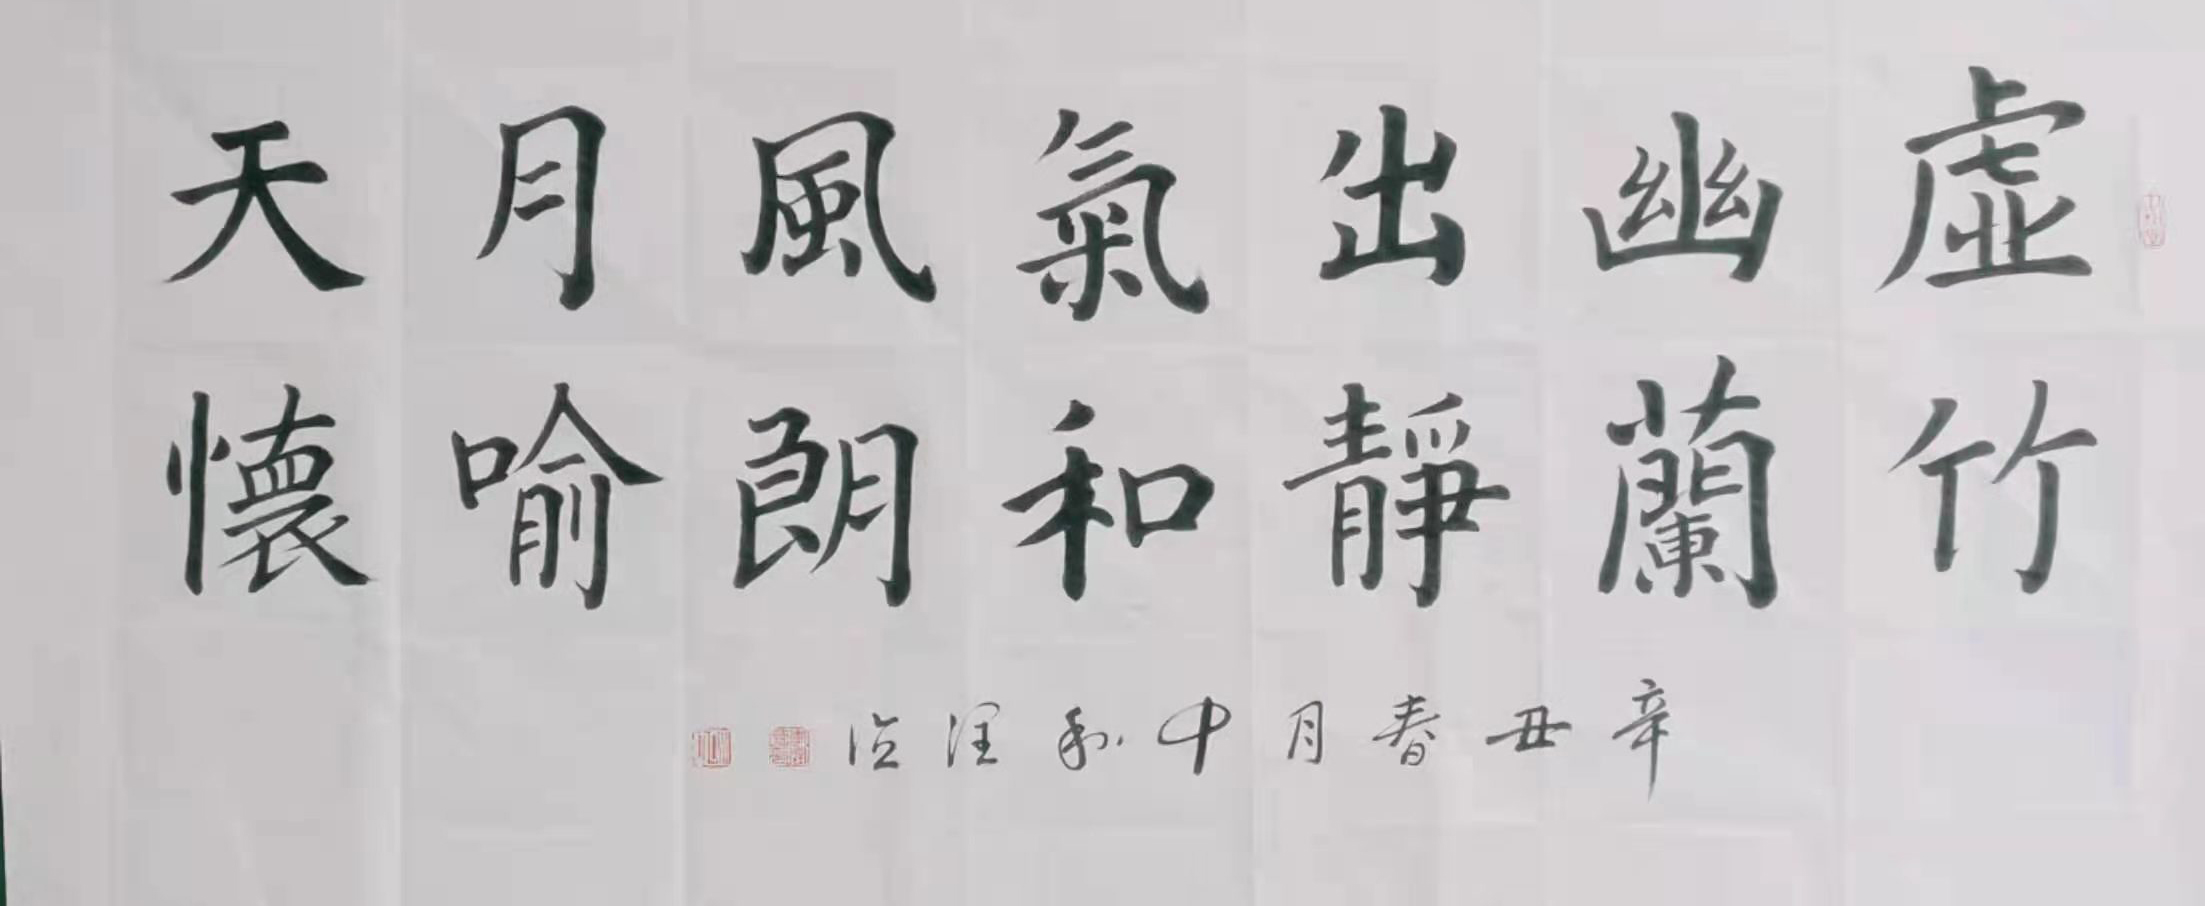 虛竹
幽蘭
出靜
氣和
風朗
月喻
天懷
辛丑春月中